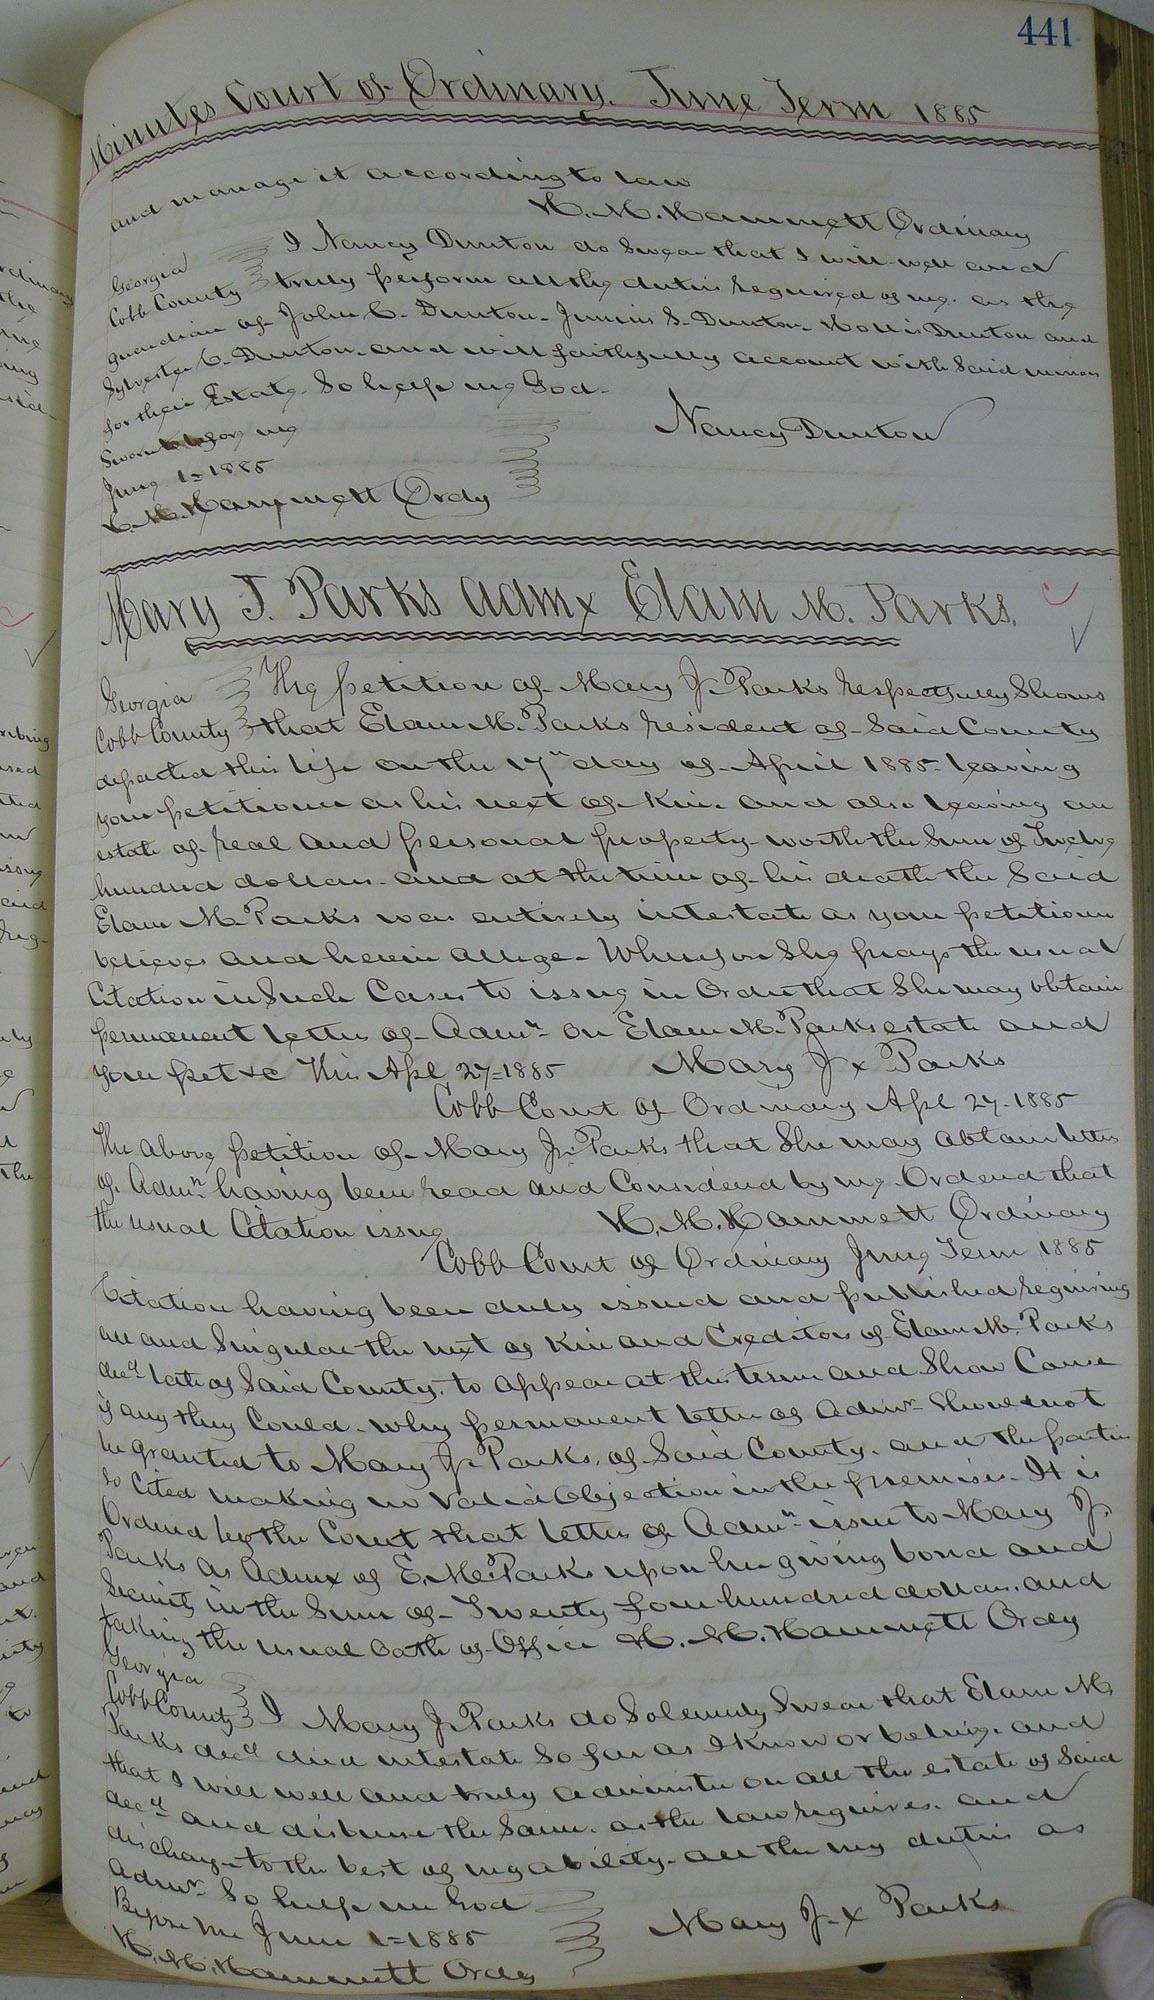 441
Minutes Court of Ordinary. June Term 1885
and manage it according to law
H. M. Hammett Ordinary
Georgia I Nancy Dunton do Swear that I will well and
Cobb County truly perform all the duties required of me. as the
guardian of John C. Dunton. Junius S. Dunton. Hollis Dunton and
Sylvester C. Dunton. and will faithfully account with Said minors
for their Estate. So help me God.
Sworn to before me
June 1= 1885
Nancy Dunton
H. M. Hammett Ordy
Mary J. Parks admx Elam M. Parks.
Georgia The petition of Mary J. Parks respectfully Shows
Cobb County that Elam M. Parks resident of Said County
departed this life on the 17th day of April 1885= leaving
your petitioner as his next of Kin. and also leaving an
estate of real and personal property. worth the Sum of Twelve
hundred dollars. and at the time of his death the Said
Elam M. Parks was entirely intestate as your petitioner
believes and herein allege. Wherefore She prays the usual
Citation in Such Cases to issue in Order that She may obtain
permanent letters of Admn on Elam M. Parks estate and
your pet &c This Apl 27=1885 Mary J x Parks
Cobb Court of Ordinary Apl 27-1885
The above petition of Mary J. Parks that She may obtain letters
of Admn having been read and Considered by me. Ordered that
the usual Citation issue H. M. Hammett Ordinary
Cobb Court of Ordinary June Term 1885
Citation having been duly issued and published requiring
all and Singular the next of Kin and Creditors of Elam M. Parks
decd late of Said County. to appear at this term and Show Cause
if any they Could. why permanent letters of Admn Should not
be granted to Mary J. Parks. of Said County. and the parties
so Cited making no Valid Objection in the premises. It is
Ordered by the Court that letters of Admn issue to Mary J.
Parks as Admx of E. M. Parks upon her giving bond and
Security in the Sum of Twenty four hundred dollars. and
taking the usual oath of Office H. M. Hammett Ordy
Georgia
Cobb County I Mary J. Parks do Solemnly Swear that Elam M.
Parks decd died intestate So far as I Know or believe. and
that I will well and truly administer on all the estate of Said
decd and disburse the Same. as the law requires. and
discharge to the best of my ability. all the my duties as
Admr. So help me God
Before me June 1=1885 Mary J. x Parks
H. M. Hammett Ordy